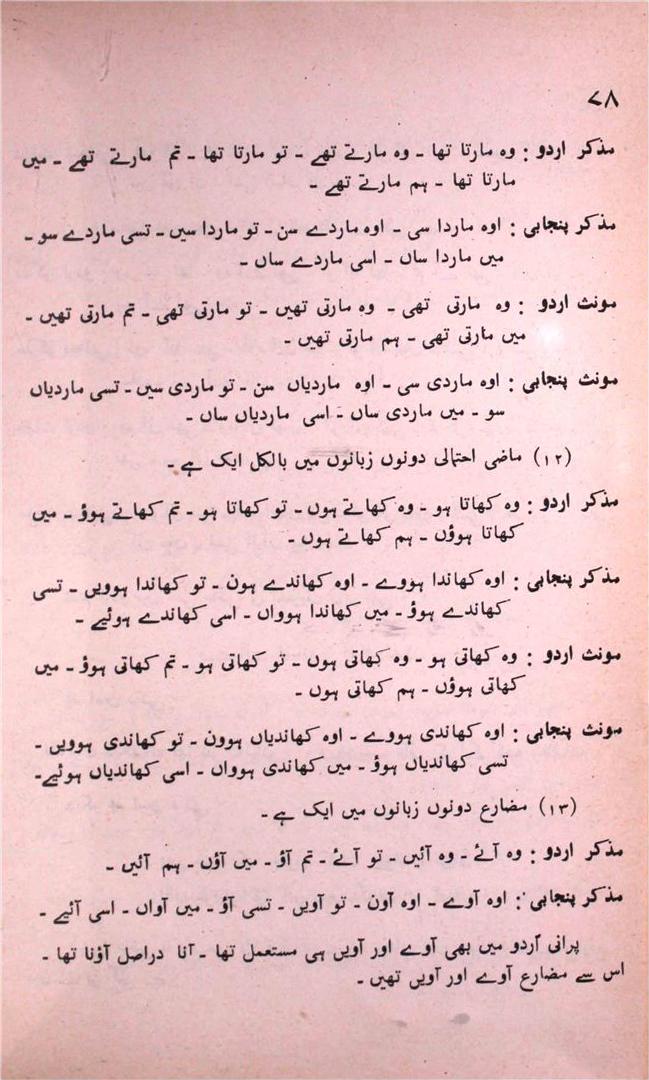 ۷۸
مذکر اردو : وہ مارتا تھا ۔ وہ مارتے تھے ۔ تو مارتا تھا ۔ تم مارتے تھے ۔ میں
مارتا تھا ۔ ہم مارتے تھے ۔
مذکر پنجابی : اوہ ماردا سی ۔ اوہ ماردے سن ۔ تو ماردا سیں ۔ تسی ماردے سو ۔
میں ماردا ساں ۔ اسی ماردے ساں ۔
مونث اردو : وہ مارتی تھی ۔ وہ مارتی تھیں ۔ تو مارتی تھی ۔ تم مارتی تھیں ۔
میں مارتی تھی ۔ ہم مارتی تھیں ۔
مونث پنجابی : اوہ ماردی سی ۔ اوہ ماردیاں سن ۔ تو ماردی سیں ۔ تسی ماردیاں
سو ۔ میں ماردی ساں ۔ اسی ماردیاں ساں ۔
(۱۲) ماضی احتمالی دونوں زبانوں میں بالکل ایک ہے ۔
مذکر اردو : وہ کھاتا ہو ۔ وہ کھاتے ہوں ۔ تو کھاتا ہو ۔ تم کھاتے ہوؤ ۔ میں
کھاتا ہوؤں ۔ ہم کھاتے ہوں ۔
مذکر پنجابی : اوہ کھاندا ہووے ۔ اوہ کھاندے ہون ۔ تو کھاندا ہوویں ۔ تسی
کھاندے ہوؤ ۔ میں کھاندا ہوواں ۔ اسی کھاندے ہوئیے ۔
مونث اردو : وہ کھاتی ہو ۔ وہ کھاتی ہوں ۔ تو کھاتی ہو ۔ تم کھاتی ہوؤ ۔ میں
کھاتی ہوؤں ۔ ہم کھاتی ہوں ۔
مونث پنجابی : اوہ کھاندی ہووے ۔ اوہ کھاندیاں ہوون ۔ تو کھاندی ہوویں ۔
تسی کھاندیاں ہوؤ ۔ میں کھاندی ہوواں ۔ اسی کھاندیاں ہوئیے ۔
(۱۳) مضارع دونوں زبانوں میں ایک ہے ۔
مذکر اردو : وہ آئے ۔ وہ آئیں ۔ تو آئے ۔ تم آؤ ۔ میں آؤں ۔ ہم آئیں ۔
مذکر پنجابی : اوہ آوے ۔ اوہ آون ۔ تو آویں ۔ تسی آؤ ۔ میں آواں ۔ اسی آئیے ۔
پرانی اُردو میں بھی آوے اور آویں ہی مستعمل تھا ۔ آنا دراصل آؤنا تھا ۔
اس سے مضارع آوے اور آویں تھیں ۔